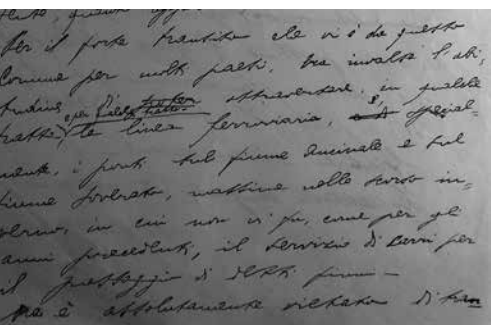 Per il forte transito che vi è da questo
Comune per molti paesi, era invalsa l'abi,
tudine, per attraversare, in qualche
tratto, la linea ferroviaria, e special=
mente, i ponti sul fiume Ancinale e sul
fiume Soverato, massime nello scorso in,
verno, in cui non vi fu, come per gli
anni precedenti, il servizio di carri per
il passaggio di detti fiumi —
Ma è assolutamente vietato di